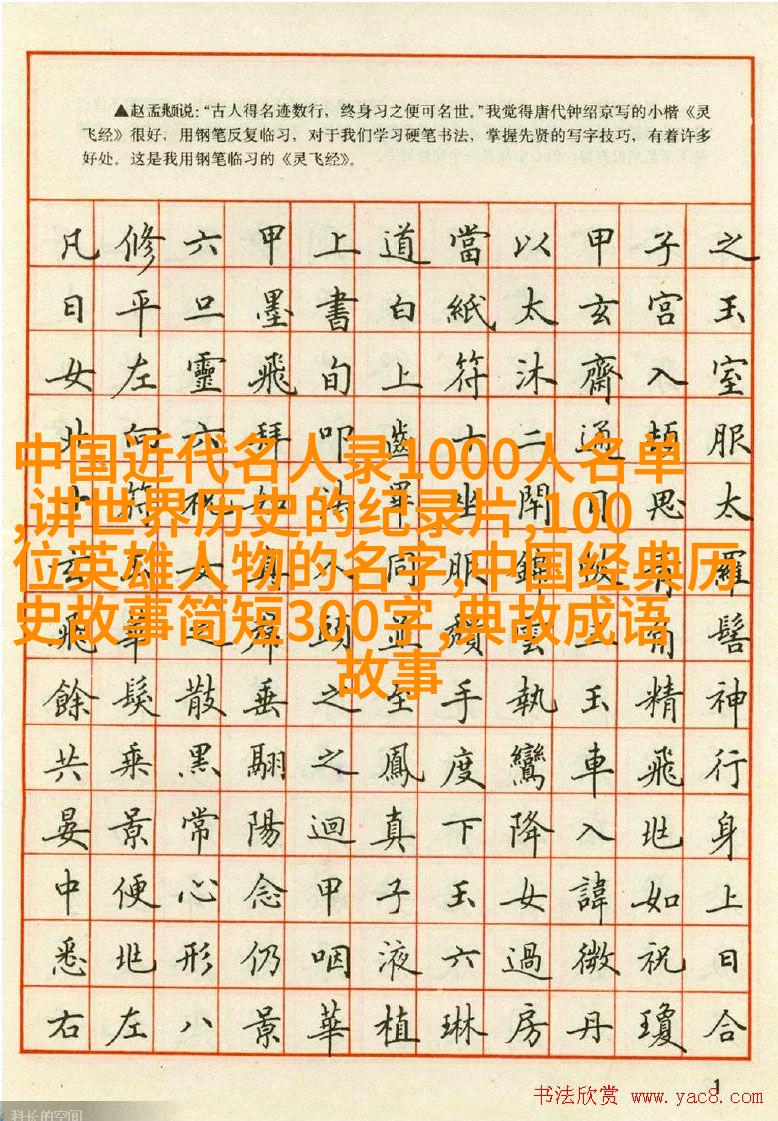 ▲赵孟頫说:“古人得名迹数行，终身习之便可名世。”我觉得唐代钟绍京写的小楷《灵
飞经》很好，用钢笔反复临习，对于我们学习硬笔书法，掌握先贤的写字技巧，有着许多
好处。这是我用钢笔临习的《灵飞经》。
凡修六甲上道當以甲子之
日平旦墨書白紙太玄宮玉
女左靈飛旬上符沐齋入室
北向六拜叩齒十二通頓服
中国近代名人录1000人名单
十符祝如坐閉目思太
,讲世界历史的纪录片,100
玄女身外同服錦帔青羅
位英雄人物的名字,中国经典历
飛華之裙頭並頹雲三角髻
史故事简短300字,典故成语
故事
餘髮散垂之至手執玉精神
共乘黑翮之鳳度鸞車飛行
晏景常陽迴真下降入兆身
中便心念甲子玉女諱如上
悉兆形仍咽液六過微祝日
右左八景華植琳房丹瓊合
1
书法欣赏 www.yac8.com
科长的空间